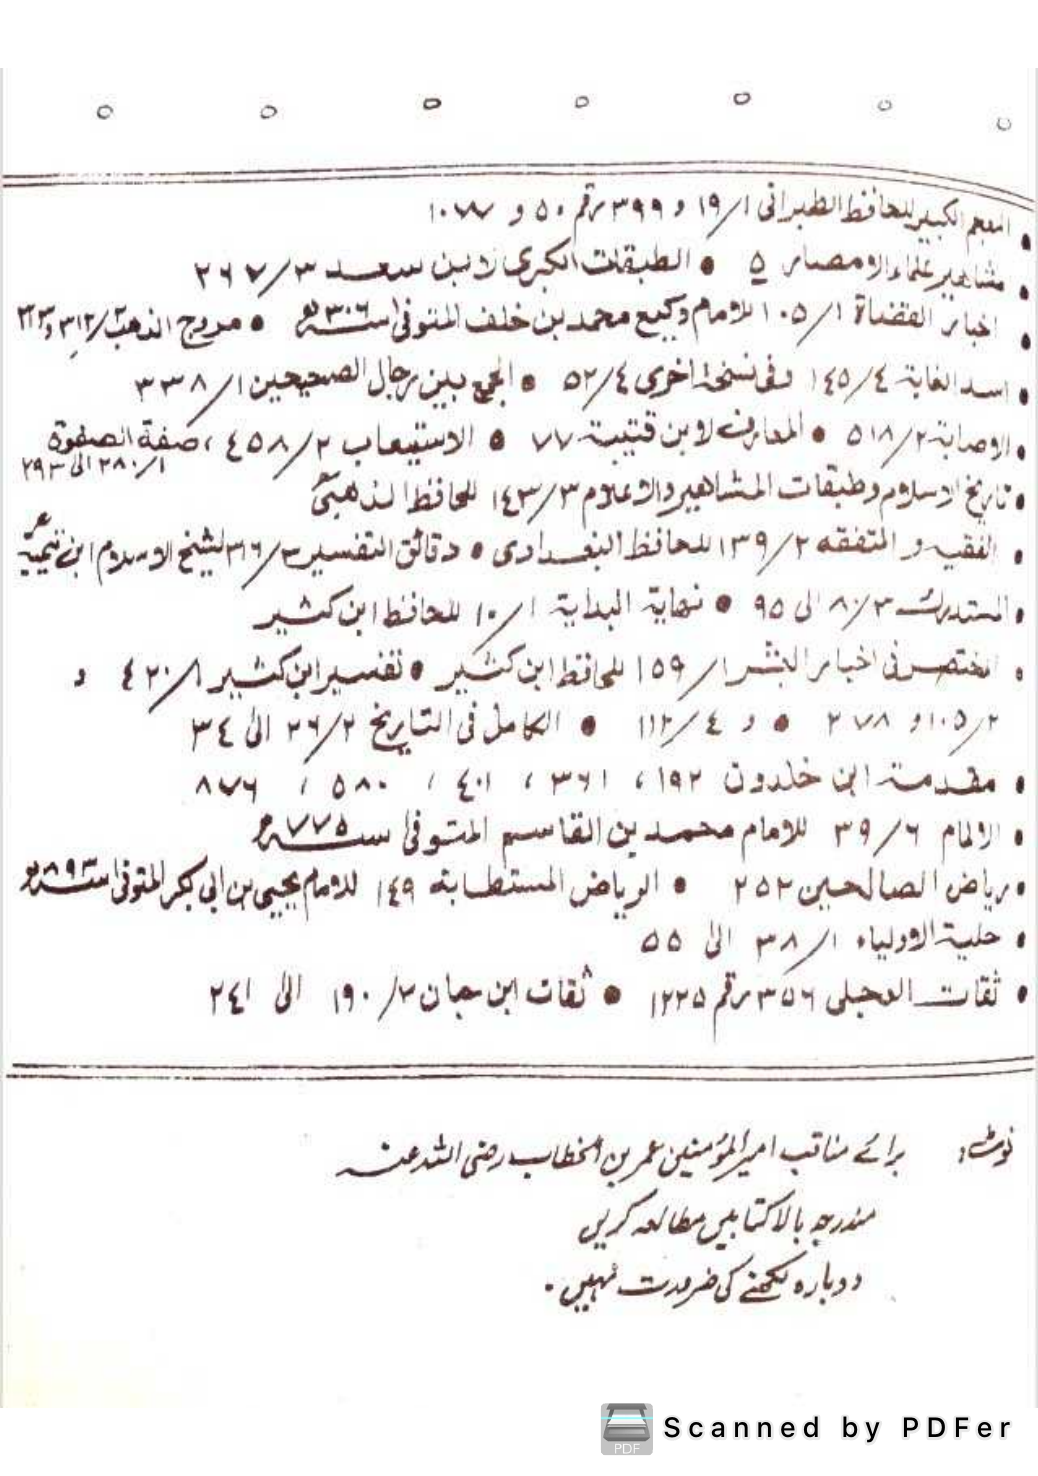 • المعجم الکبیر للحافظ الطبرانی ۱/۱۹ و ۳۹۹ رقم ۵۰ و ۱۰۷۷
• مشاهیر علماء الامصار ۵ • الطبقات الکبری لابن سعد ۳/۲۶۷
• اخبار القضاة ۱/۱۰۵ للامام وکیع محمد بن خلف المتوفی ۳۰۶ • مروج الذهب ۲/۳۱۲
• اسد الغابة ۴/۱۴۵ وفی نسخة اخری ۴/۵۲ • الجمع بین رجال الصحیحین ۱/۳۳۸
• الاصابة ۲/۵۱۸ • المعارف لابن قتیبة ۷۷ • الاستیعاب ۲/۴۵۸، صفة الصفوة
۱/۲۸۰ الی ۲۹۳
• تاریخ الاسلام وطبقات المشاهیر والاعلام ۳/۱۴۳ للحافظ الذهبی
• الفقیه و المتفقه ۲/۱۳۹ للحافظ البغدادی • دقائق التفسیر ۳/۳۱۶ لشیخ الاسلام ابن تیمیة
• المستدرک ۳/۸۰ الی ۹۵ • نهایة البدایة ۱/۱۰ للحافظ ابن کثیر
• المختصر فی اخبار البشر ۱/۱۵۹ للحافظ ابن کثیر • تفسیر ابن کثیر ۱/۴۲۰ و
۲/۱۰۵ و ۲۷۸ • و ۴/۱۱۲ • الکامل فی التاریخ ۲/۲۶ الی ۳۴
• مقدمة ابن خلدون ۱۹۲، ۳۶۱، ۴۰۱، ۵۸۰، ۸۷۶
• الالمام ۶/۳۹ للامام محمد بن القاسم المتوفی سنة ۷۷۵
• ریاض الصالحین ۲۵۲ • الریاض المستطابة ۱۴۹ للامام یحیی بن ابی بکر المتوفی سنة ۸۹۳
• حلیة الاولیاء ۱/۳۸ الی ۵۵
• ثقات العجلی ۳۵۶ رقم ۱۲۲۵ • ثقات ابن حبان ۲/۱۹۰ الی ۲۴۱
نوٹ: برائے مناقب امیر المؤمنین عمر بن الخطاب رضی اللہ عنہ
مندرجہ بالا کتابیں مطالعہ کریں
دوبارہ لکھنے کی ضرورت نہیں۔
PDF
Scanned by PDFer